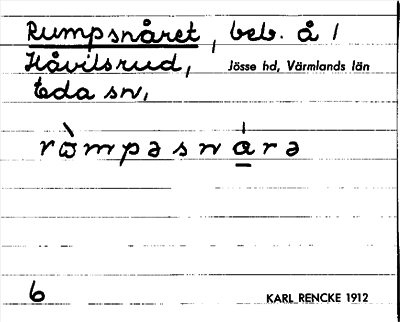 Rumpsnåret, beb. å 1
Håvilsrud, Jösse hd, Värmlands län
Eda sn,
rὼmpəsnárə
6 KARL RENCKE 1912